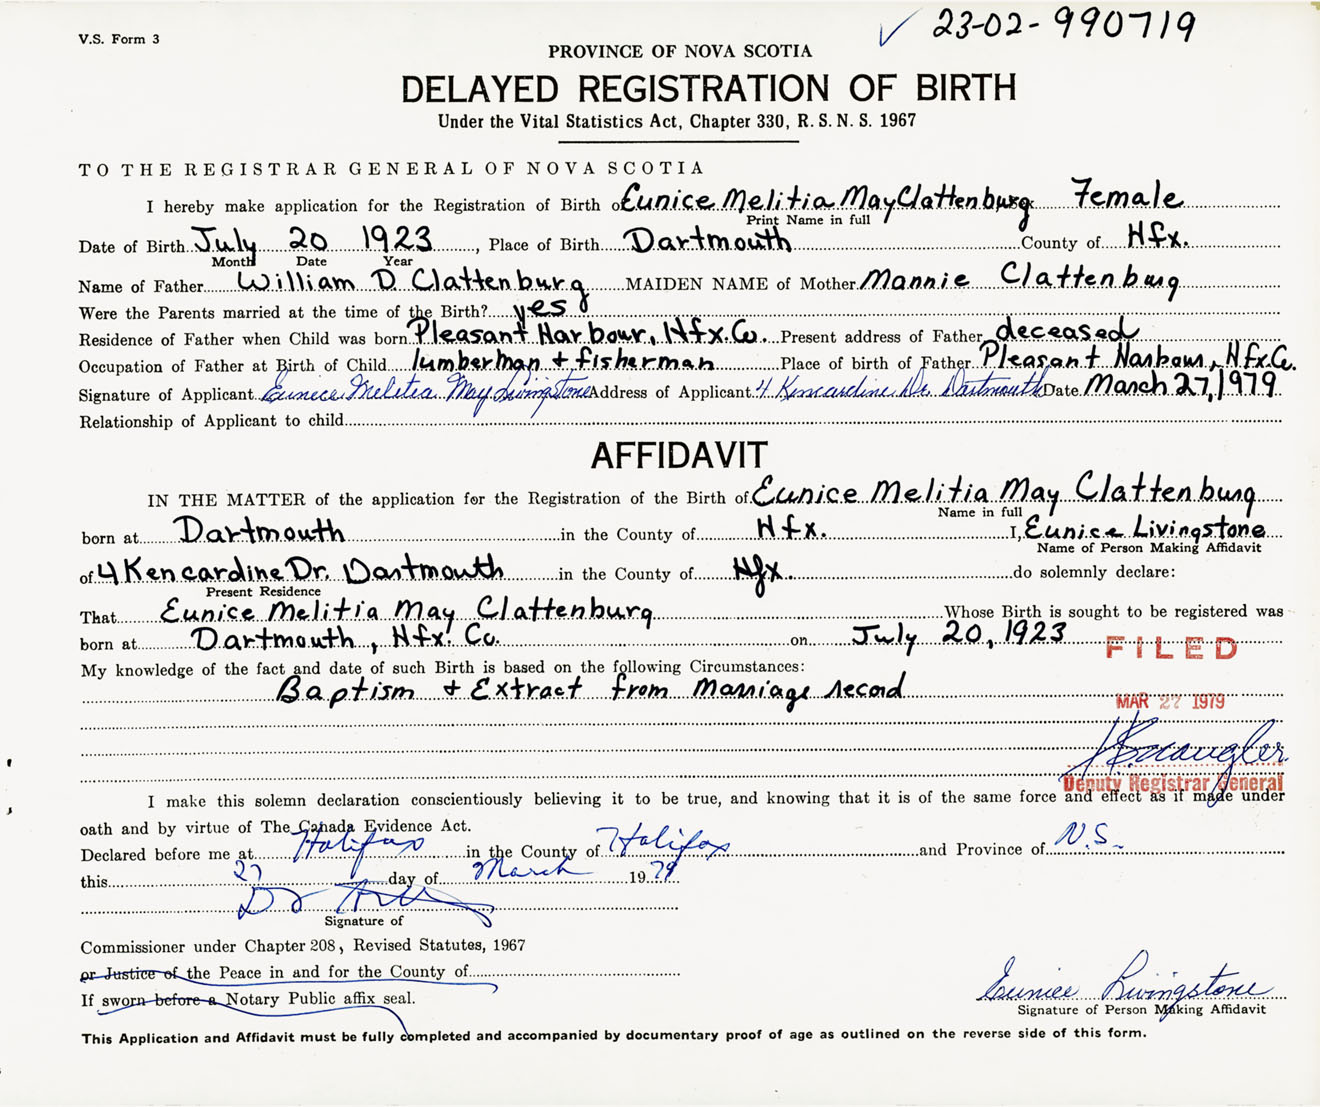 V.S. Form 3
✓ 23-02-990719
PROVINCE OF NOVA SCOTIA
DELAYED REGISTRATION OF BIRTH
Under the Vital Statistics Act, Chapter 330, R. S. N. S. 1967
TO THE REGISTRAR GENERAL OF NOVA SCOTIA
I hereby make application for the Registration of Birth of Eunice Melitia May Clattenburg Female
Print Name in full
Date of Birth July 20 1923, Place of Birth Dartmouth County of Hfx.
Month Date Year
Name of Father William D. Clattenburg MAIDEN NAME of Mother Mannie Clattenburg
Were the Parents married at the time of the Birth? yes
Residence of Father when Child was born Pleasant Harbour, Hfx. Co. Present address of Father deceased
Occupation of Father at Birth of Child lumberman + fisherman Place of birth of Father Pleasant Harbour, Hfx. Co.
Signature of Applicant Eunice Melitia May Livingstone Address of Applicant 4 Kencardine Dr. Dartmouth Date March 27, 1979
Relationship of Applicant to child
AFFIDAVIT
IN THE MATTER of the application for the Registration of the Birth of Eunice Melitia May Clattenburg
Name in full
born at Dartmouth in the County of Hfx. I, Eunice Livingstone
Name of Person Making Affidavit
of 4 Kencardine Dr. Dartmouth in the County of Hfx. do solemnly declare:
Present Residence
That Eunice Melitia May Clattenburg Whose Birth is sought to be registered was
born at Dartmouth, Hfx. Co. on July 20, 1923
FILED
My knowledge of the fact and date of such Birth is based on the following Circumstances:
Baptism + Extract from Marriage record
MAR 27 1979
Deputy Registrar General
I make this solemn declaration conscientiously believing it to be true, and knowing that it is of the same force and effect as if made under
oath and by virtue of The Canada Evidence Act.
Declared before me at Halifax in the County of Halifax and Province of N.S.
this 27 day of March 19 79
Signature of
Commissioner under Chapter 208, Revised Statutes, 1967
or Justice of the Peace in and for the County of
If sworn before a Notary Public affix seal.
Eunice Livingstone
Signature of Person Making Affidavit
This Application and Affidavit must be fully completed and accompanied by documentary proof of age as outlined on the reverse side of this form.